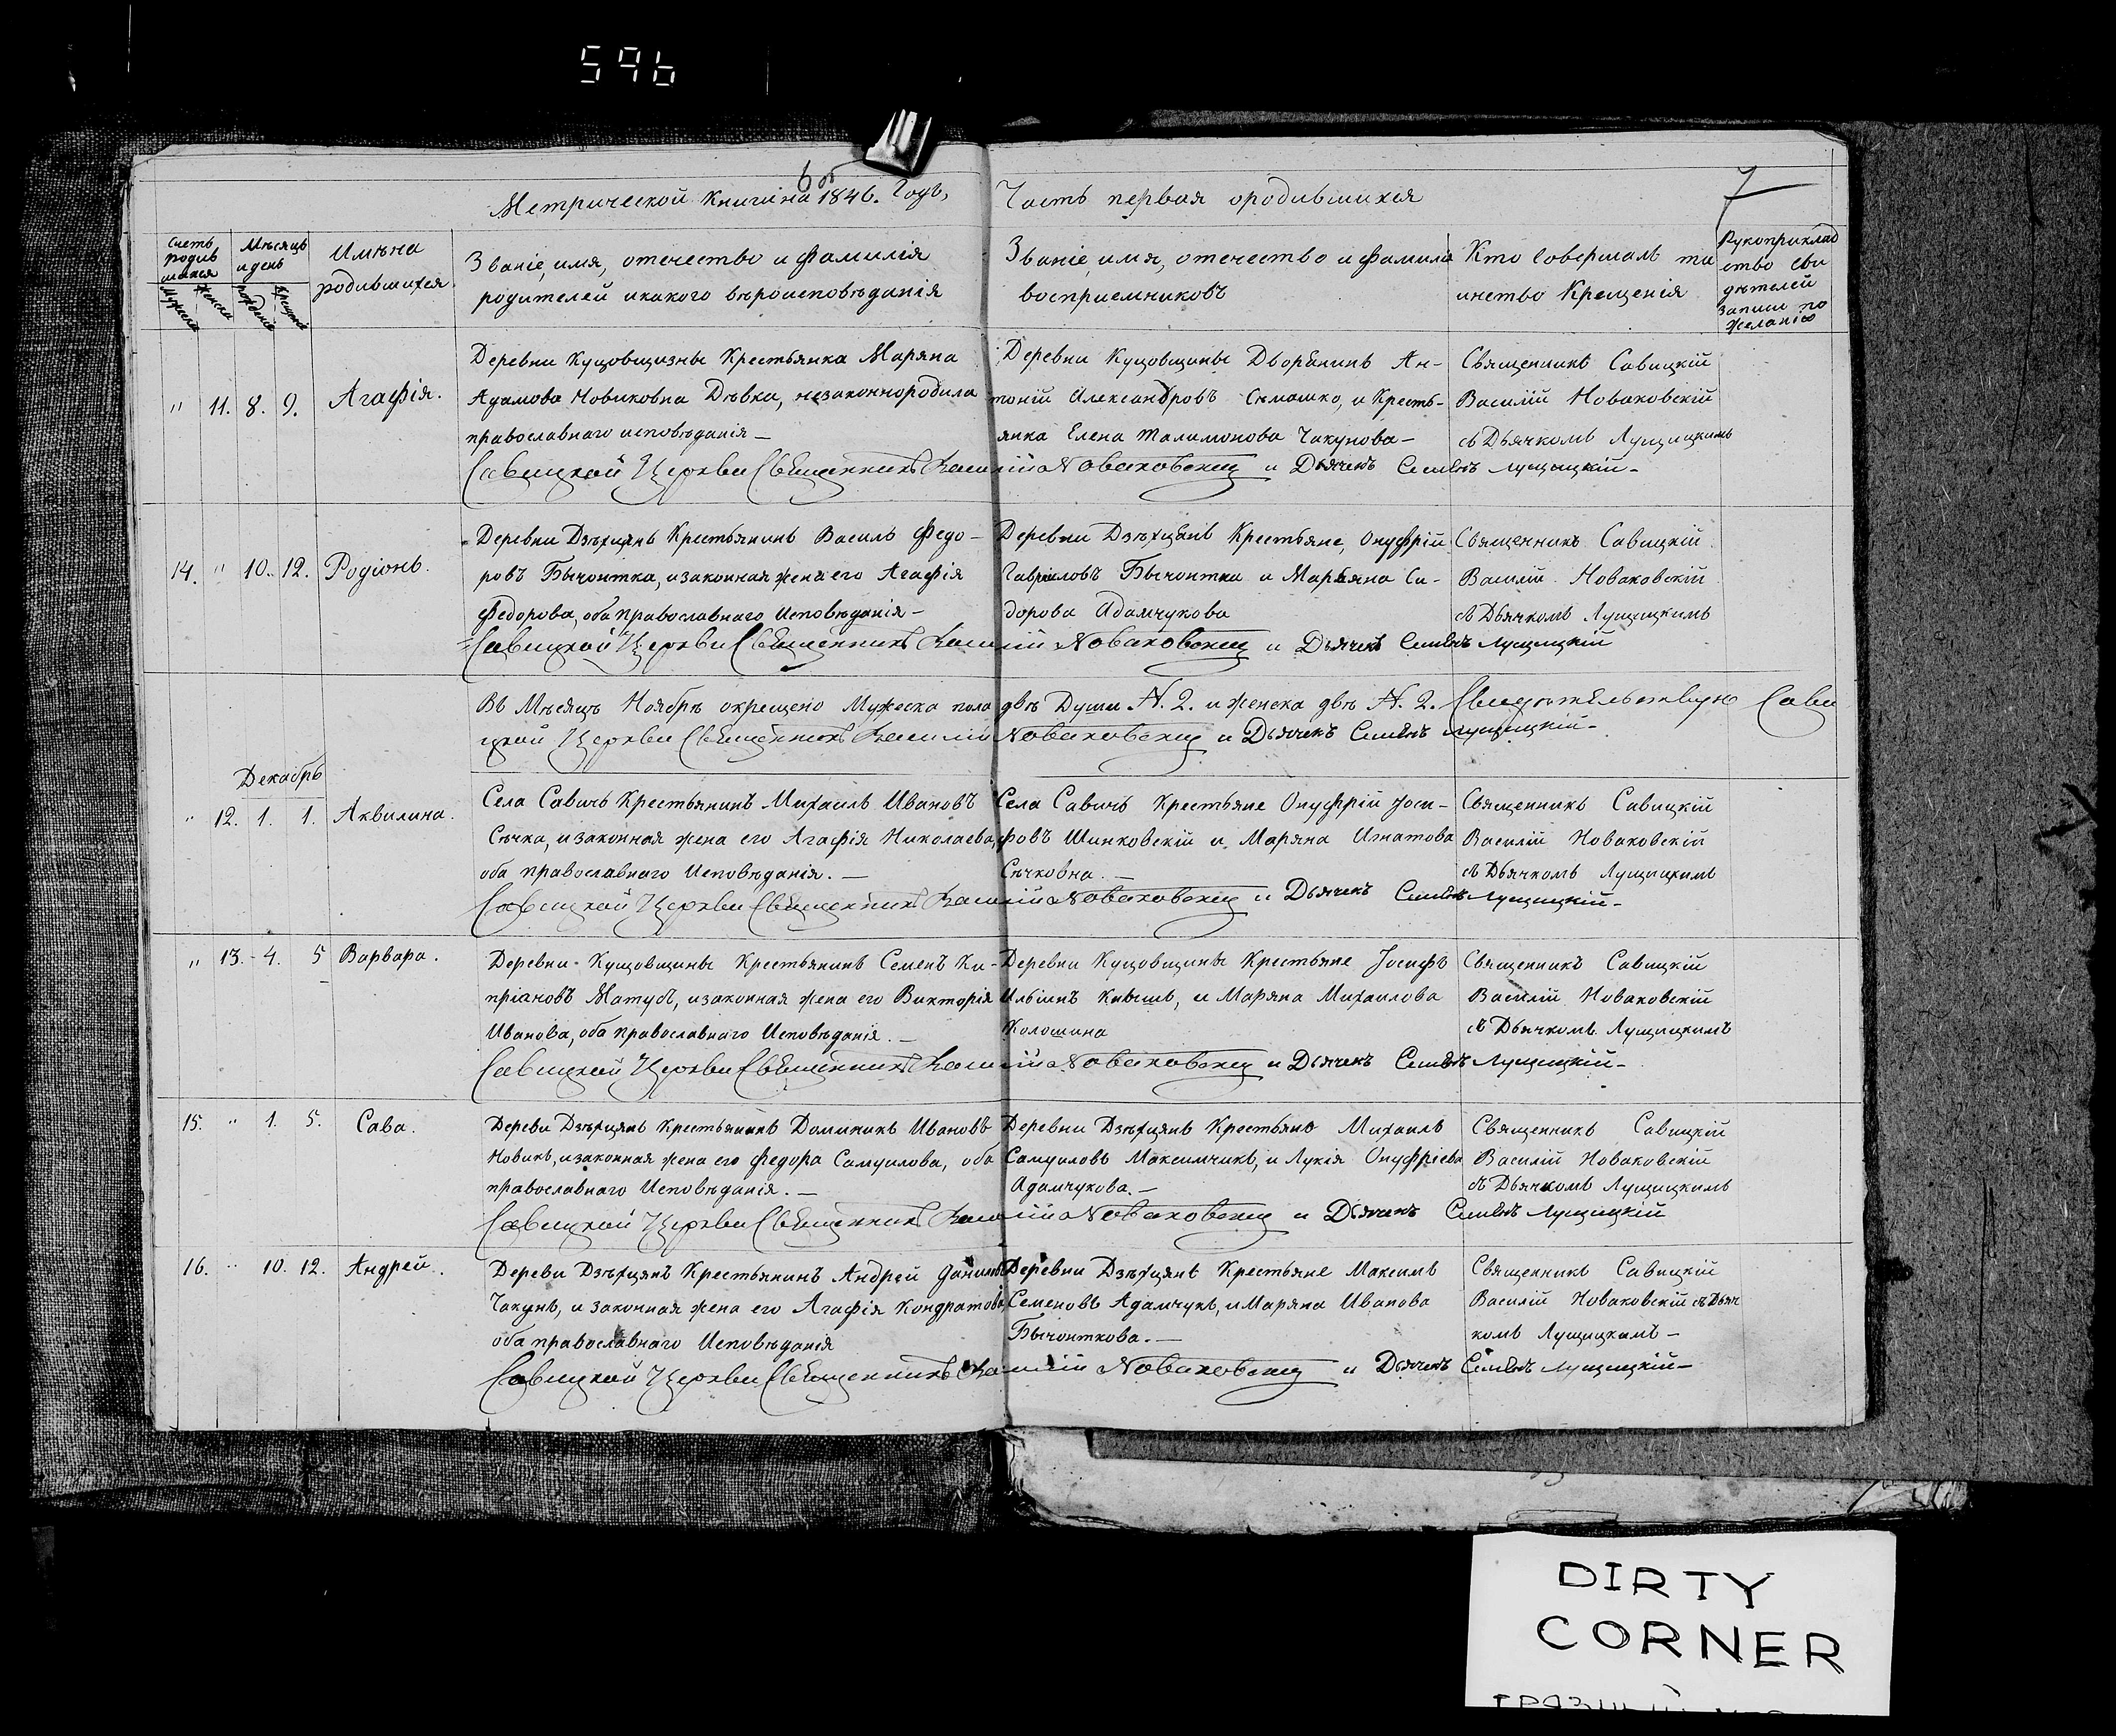 596
6 об
7
Метрической Книги на 1846. Годъ, Часть первая о родившихся
Счетъ родившихся
Мужеска
Женска
Мѣсяцъ и день
рожденія
крещенія
Имѣна родившихся.
Званіе, имя, отечество и фамилія
родителей и какого вѣроисповѣданія
Званіе, имя, отечество и фамилія
восприемниковъ
Кто совершалъ таинство Крещенія
Рукоприкладство свидѣтелей записи по желанію
" 11. 8. 9. Агафія.
Деревни Куцовщизны Крестьянка Маряна
Адамова Новиковна Дѣвка, незаконнородила
православнаго исповѣданія —
Деревни Куцовщины Дворянинъ Ан-
тоній Александровъ Сѣмашко, и Кресть-
янка Елена Талимонова Чакунова —
Священникъ Савицкій
Василій Новаковскій
съ Дьячкомъ Лущицкимъ
Савицкой Церкви Священникъ Василій Новаковскій и Дьячекъ Семенъ Лущицкій —
14. " 10. 12. Родіонъ.
Деревни Дзѣхцянъ Крестьянинъ Василь Федо-
ровъ Бычонтка, и законная жена его Агафія
Федорова, оба православнаго Исповѣданія —
Деревни Дзѣхцянъ Крестьяне, Онуфрій
Гавриловъ Бычонтка и Марьяна Си-
дорова Адамчукова
Священникъ Савицкій
Василій Новаковскій
съ Дьячкомъ Лущицкимъ
Савицкой Церкви Священникъ Василій Новаковскій и Дьячекъ Семенъ Лущицкій
Въ Мѣсяцѣ Ноябрѣ окрещено Мужеска пола двѣ Души N. 2. и женска двѣ N. 2. Свидѣтельствую Сави
цкой Церкви Священникъ Василій Новаковскій и Дьячекъ Семенъ Лущицкій —
Декабрь
" 12. 1. 1. Аквилина.
Села Савичъ Крестьянинъ Михаилъ Ивановъ
Сѣчка, и законная жена его Агафія Николаева,
оба православнаго Исповѣданія. —
Села Савичъ Крестьяне Онуфрій Іоси-
фовъ Шинковскій и Маряна Игнатова
Сѣчковна. —
Священникъ Савицкій
Василій Новаковскій
съ Дьячкомъ Лущицкимъ
Савицкой Церкви Священникъ Василій Новаковскій и Дьячекъ Семенъ Лущицкій —
" 13. 4. 5 Варвара.
Деревни Куцовщины Крестьянинъ Семенъ Ки-
пріановъ Матусъ, и законная жена его Викторія
Иванова, оба православнаго Исповѣданія. —
Деревни Куцовщины Крестьяне Іосифъ
Ильинъ Кнышъ, и Маряна Михаилова
Колошина
Священникъ Савицкій
Василій Новаковскій
съ Дьячкомъ Лущицкимъ
Савицкой Церкви Священникъ Василій Новаковскій и Дьячекъ Семенъ Лущицкій —
15. " 1. 5. Сава.
Дереви Дзѣхцянъ Крестьянинъ Доминикъ Ивановъ
Новикъ, и законная жена его Федора Самуилова, оба
православнаго Исповѣданія. —
Деревни Дзѣхцянъ Крестьяне Михаилъ
Самуиловъ Максимчикъ, и Лукія Онуфріева
Адамчукова. —
Священникъ Савицкій
Василій Новаковскій
съ Дьячкомъ Лущицкимъ
Савицкой Церкви Священникъ Василій Новаковскій и Дьячекъ Семенъ Лущицкій
16. " 10. 12. Андрей.
Дереви Дзѣхцянъ Крестьянинъ Андрей Даниловъ
Чакунъ, и законная жена его Агафія Кондратова,
оба православнаго Исповѣданія
Деревни Дзѣхцянъ Крестьяне Максимъ
Семеновъ Адамчукъ, и Маряна Иванова
Бычонткова. —
Священникъ Савицкій
Василій Новаковскій съ Дьяч
комъ Лущицкимъ —
Савицкой Церкви Священникъ Василій Новаковскій и Дьячекъ Семенъ Лущицкій —
DIRTY
CORNER